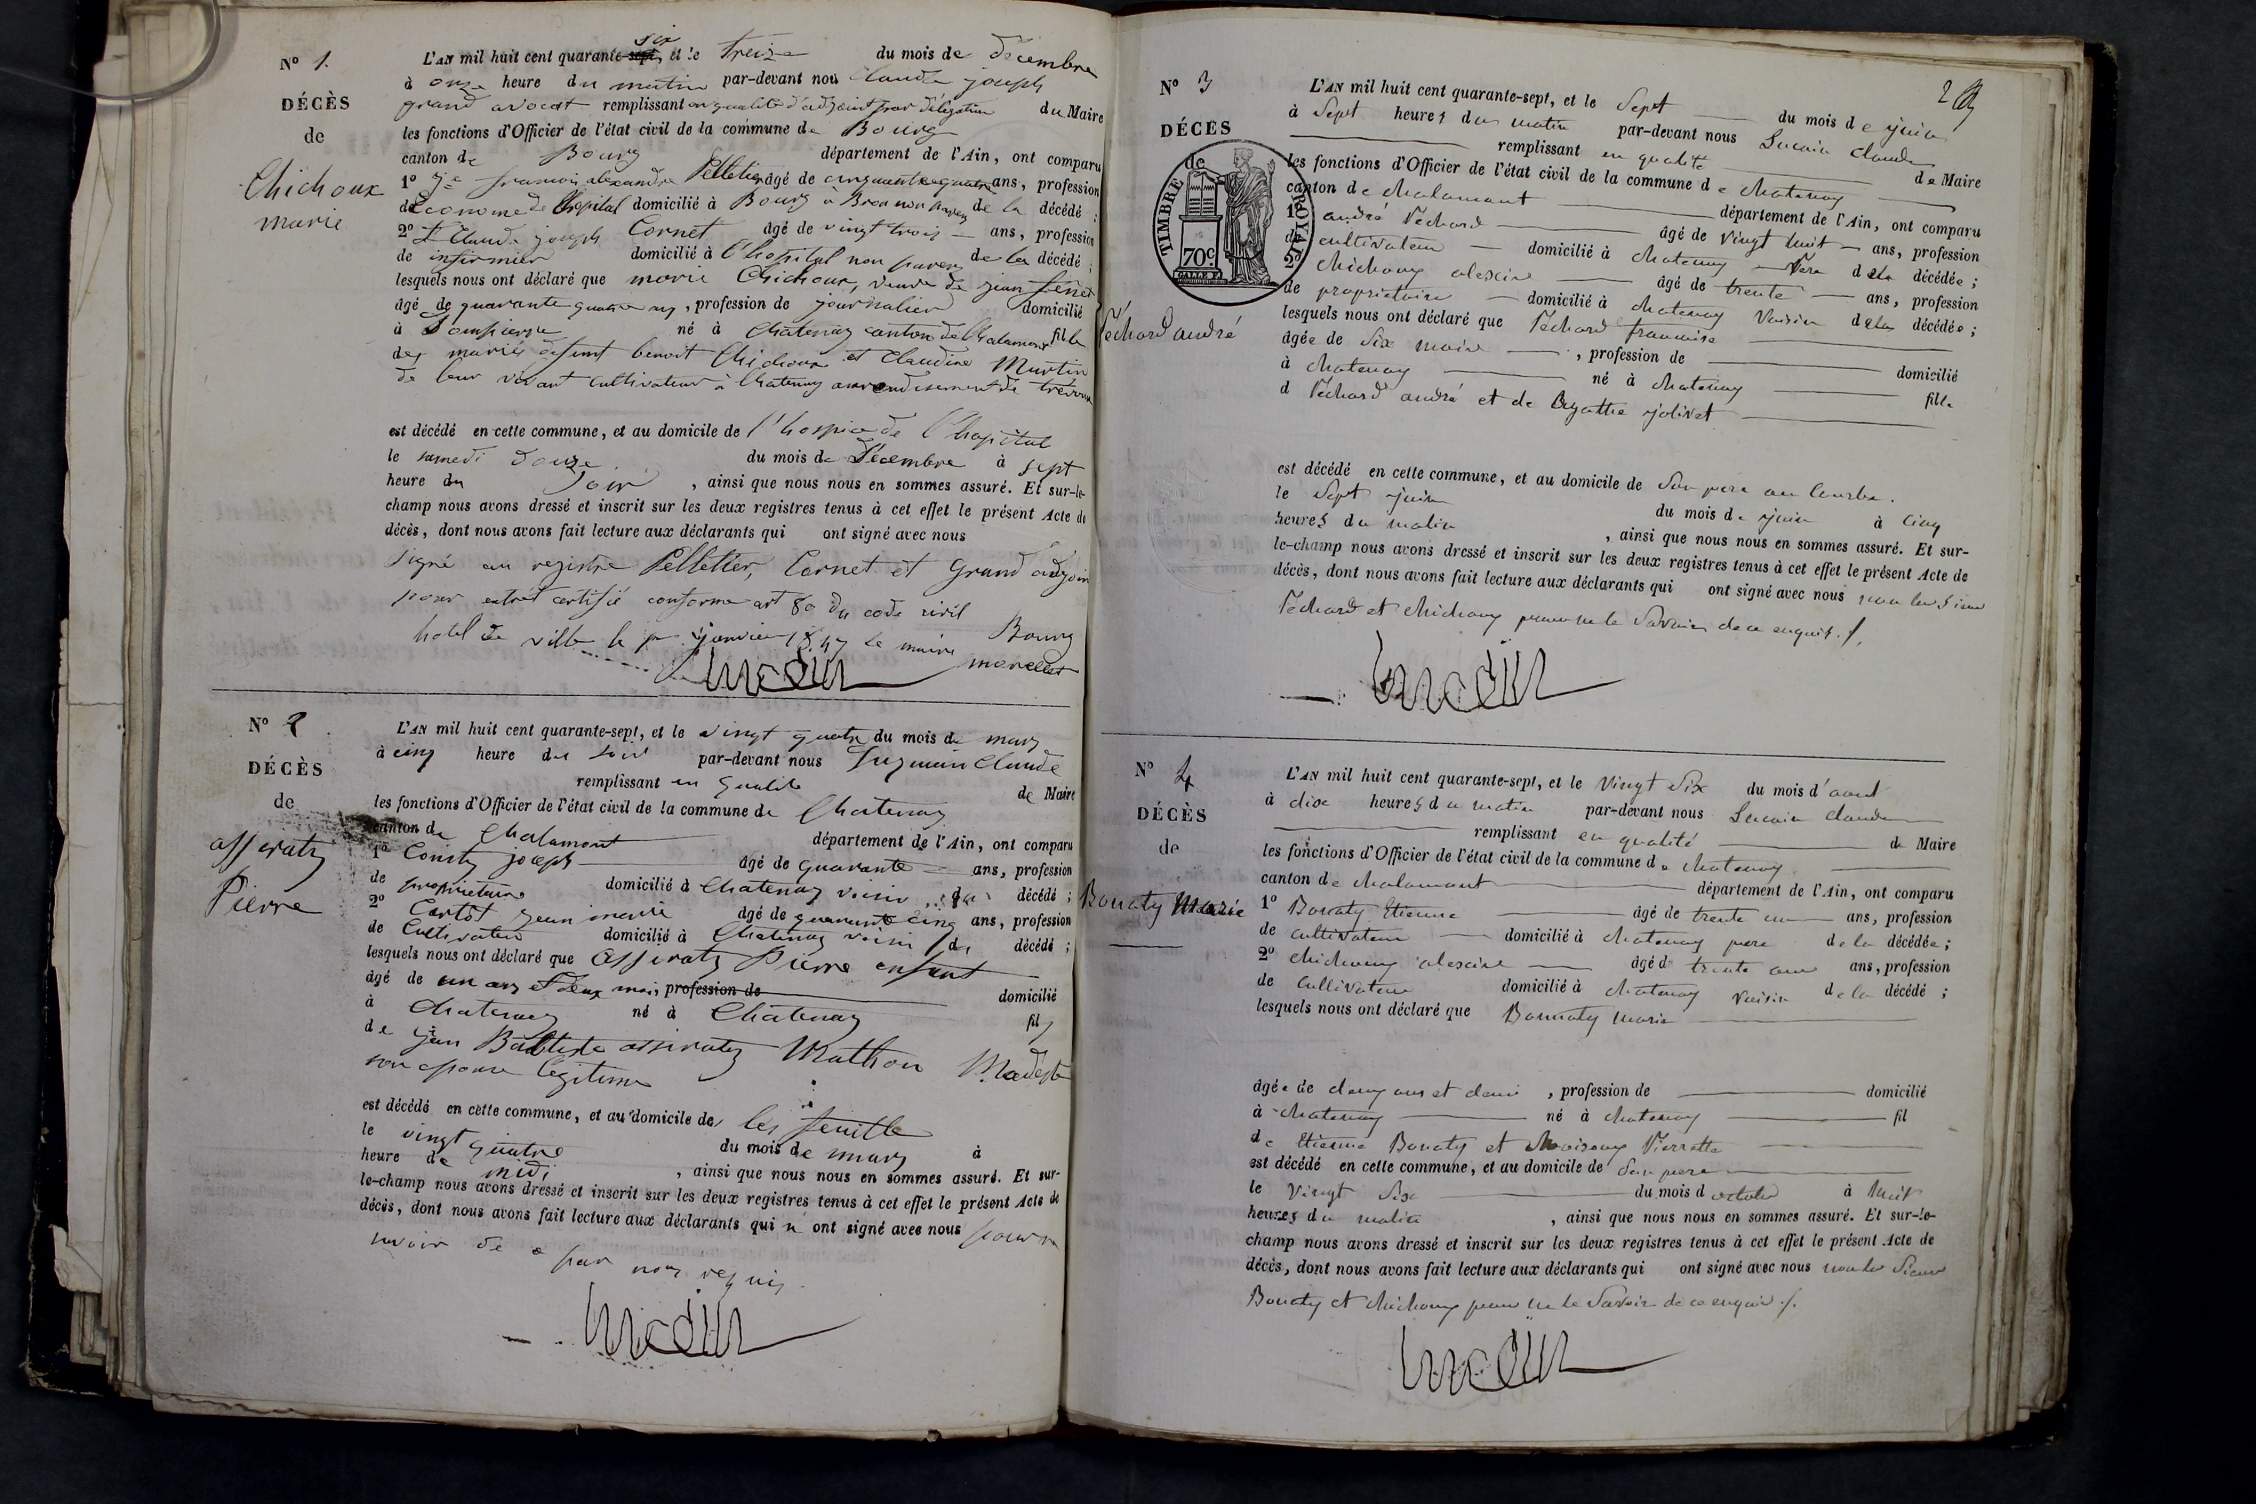 N° 1.
DÉCÈS
de
Chichoux
marie
L'AN mil huit cent quarante-sept, six et le treize du mois de décembre
à onze heure du matin par-devant nous Claude joseph
grand avocat remplissant en qualité d'adjoint par délégation du Maire
les fonctions d'Officier de l'état civil de la commune de Bourg
canton de Bourg département de l'Ain, ont comparu
1° françois alexandre Pelletier âgé de cinquante quatre ans, profession
de Econome de l'hôpital domicilié à Bourg à Brou non parent de la décédé ;
2° Claude joseph Cornet âgé de vingt trois ans, profession
de infirmier domicilié à l'hopital non parent de la décédé ;
lesquels nous ont déclaré que marie Chichoux, veuve de jean
âgé de quarante quatre ans, profession de journalier domicilié
à Dompierre né à Châtenay canton de Chalamont fille
des mariés défunt benoit Chichoux et Claudine Martin
de leur vivant cultivateur à Chatenay arrondissement de trévoux
est décédé en cette commune, et au domicile de l'hospice de l'hopital
le samedi douze du mois de Décembre à sept
heure du soir, ainsi que nous nous en sommes assuré. Et sur-le-
champ nous avons dressé et inscrit sur les deux registres tenus à cet effet le présent Acte de
décès, dont nous avons fait lecture aux déclarants qui ont signé avec nous
signé au registre Pelletier, Cornet et Grand adjoint
pour extrait certifié conforme art 80 du code civil Bourg
hotel de ville le janvier 1847 le maire
N° 2
DÉCÈS
de
asseraty
Pierre
L'AN mil huit cent quarante-sept, et le vingt quatre du mois de mars
à cinq heure du soir par-devant nous Claude
remplissant en qualité de Maire
les fonctions d'Officier de l'état civil de la commune de Chatenay
canton de Chalamont département de l'Ain, ont comparu
1° joseph âgé de quarante ans, profession
de propriétaire domicilié à Chatenay voisin du décédé ;
2° jean marie âgé de quarante cinq ans, profession
de Cultivateur domicilié à Chatenay voisin du décédé ;
lesquels nous ont déclaré que asseraty Pierre enfant
âgé de un ans et deux mois profession de domicilié
à Chatenay né à Chatenay fils
de jean Baptiste asseraty Mathon Modeste
son épouse légitime
est décédé en cette commune, et au domicile de les feuille
le vingt quatre du mois de mars à
heure de midi, ainsi que nous nous en sommes assuré. Et sur-
le-champ nous avons dressé et inscrit sur les deux registres tenus à cet effet le présent Acte de
décès, dont nous avons fait lecture aux déclarants qui n'ont signé avec nous pour ne
savoir de ce par nous requis.
2
N° 3
DÉCÈS
de
TIMBRE ROYAL
70c
Péchard andré
L'AN mil huit cent quarante-sept, et le Sept du mois de juin
à Sept heures du matin par-devant nous Claude
remplissant en qualité de Maire
les fonctions d'Officier de l'état civil de la commune de chatenay
canton de chalamont département de l'Ain, ont comparu
1° andré Péchard âgé de vingt huit ans, profession
de cultivateur domicilié à chatenay Père de la décédée ;
2° chichoux alexis âgé de trente ans, profession
de propriétaire domicilié à chatenay Voisin de la décédée ;
lesquels nous ont déclaré que Péchard françoise
âgée de Six mois, profession de domicilié
à chatenay né à chatenay fille
d Péchard andré et de Agathe jolivet
est décédé en cette commune, et au domicile de Son père
le Sept juin du mois de juin à Cinq
heures du matin, ainsi que nous nous en sommes assuré. Et sur-
le-champ nous avons dressé et inscrit sur les deux registres tenus à cet effet le présent Acte de
décès, dont nous avons fait lecture aux déclarants qui ont signé avec nous non les Sieurs
Péchard et chichoux pour ne le Savoir de ce enquis.
N° 4
DÉCÈS
de
Bouaty Marie
L'AN mil huit cent quarante-sept, et le Vingt Six du mois d'aout
à dix heures du matin par-devant nous Claude
remplissant en qualité de Maire
les fonctions d'Officier de l'état civil de la commune de chatenay
canton de chalamont département de l'Ain, ont comparu
1° Bouaty Etienne âgé de trente un ans, profession
de cultivateur domicilié à chatenay père de la décédée ;
2° chichoux alexis âgé de trente ans, profession
de Cultivateur domicilié à chatenay Voisin de la décédé ;
lesquels nous ont déclaré que Bouaty Marie
âgée de deux ans et demi, profession de domicilié
à chatenay né à chatenay fil
de Etienne Bouaty et Pierrette
est décédé en cette commune, et au domicile de Son père
le Vingt Six du mois d à huit
heures du matin, ainsi que nous nous en sommes assuré. Et sur-le-
champ nous avons dressé et inscrit sur les deux registres tenus à cet effet le présent Acte de
décès, dont nous avons fait lecture aux déclarants qui ont signé avec nous non les Sieurs
Bouaty et chichoux pour ne le Savoir de ce enquis.